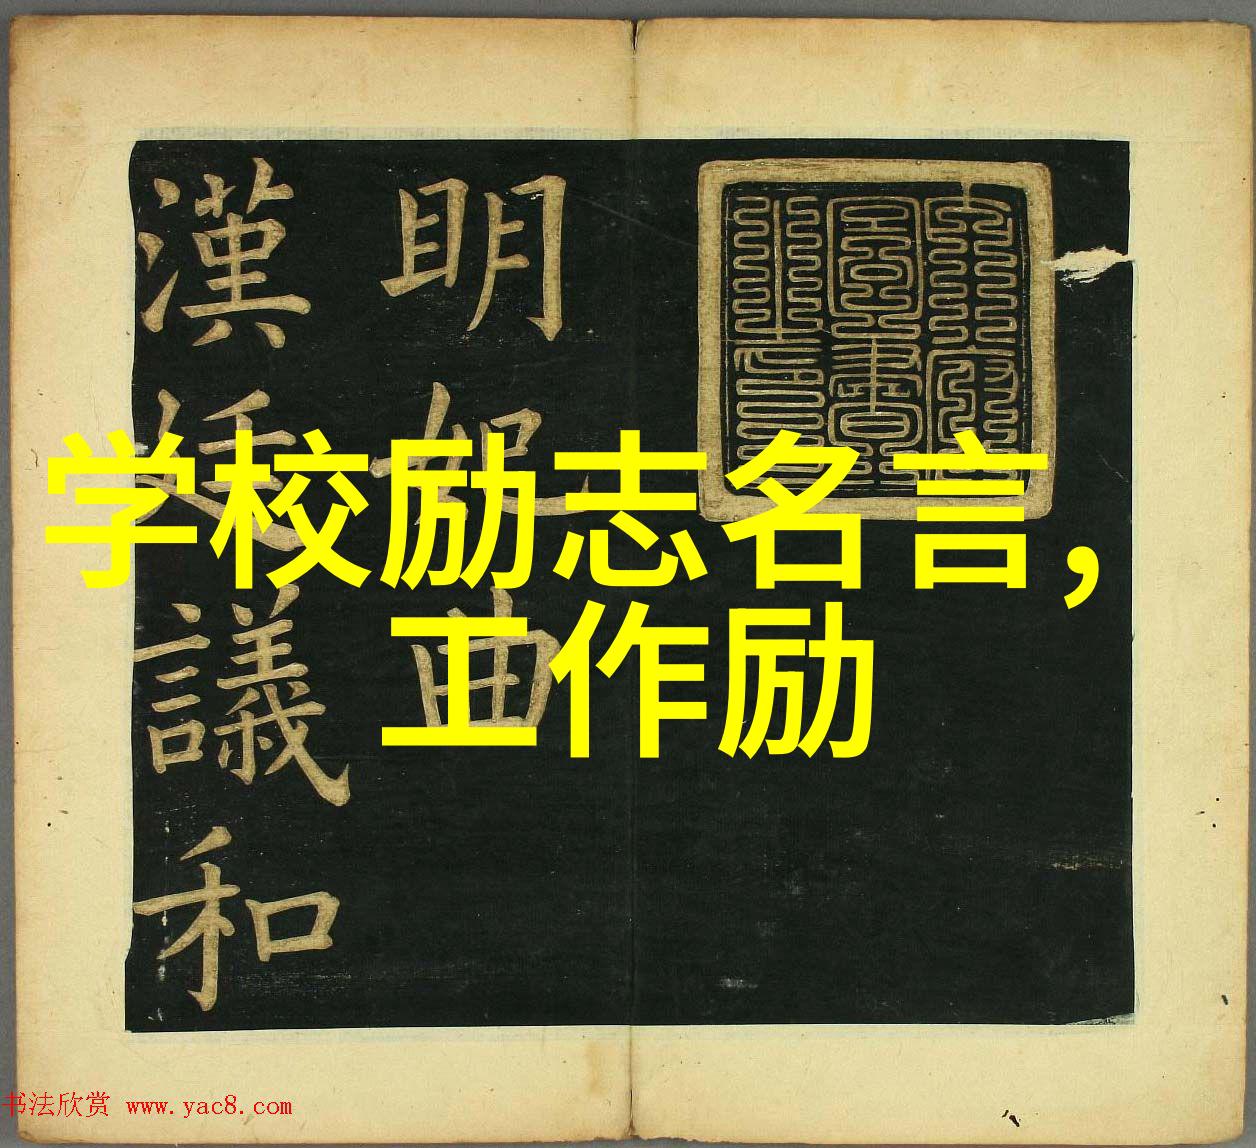 眀妃曲
漢廷議和
学校励志名言，
工作励
书法欣赏 www.yac8.com